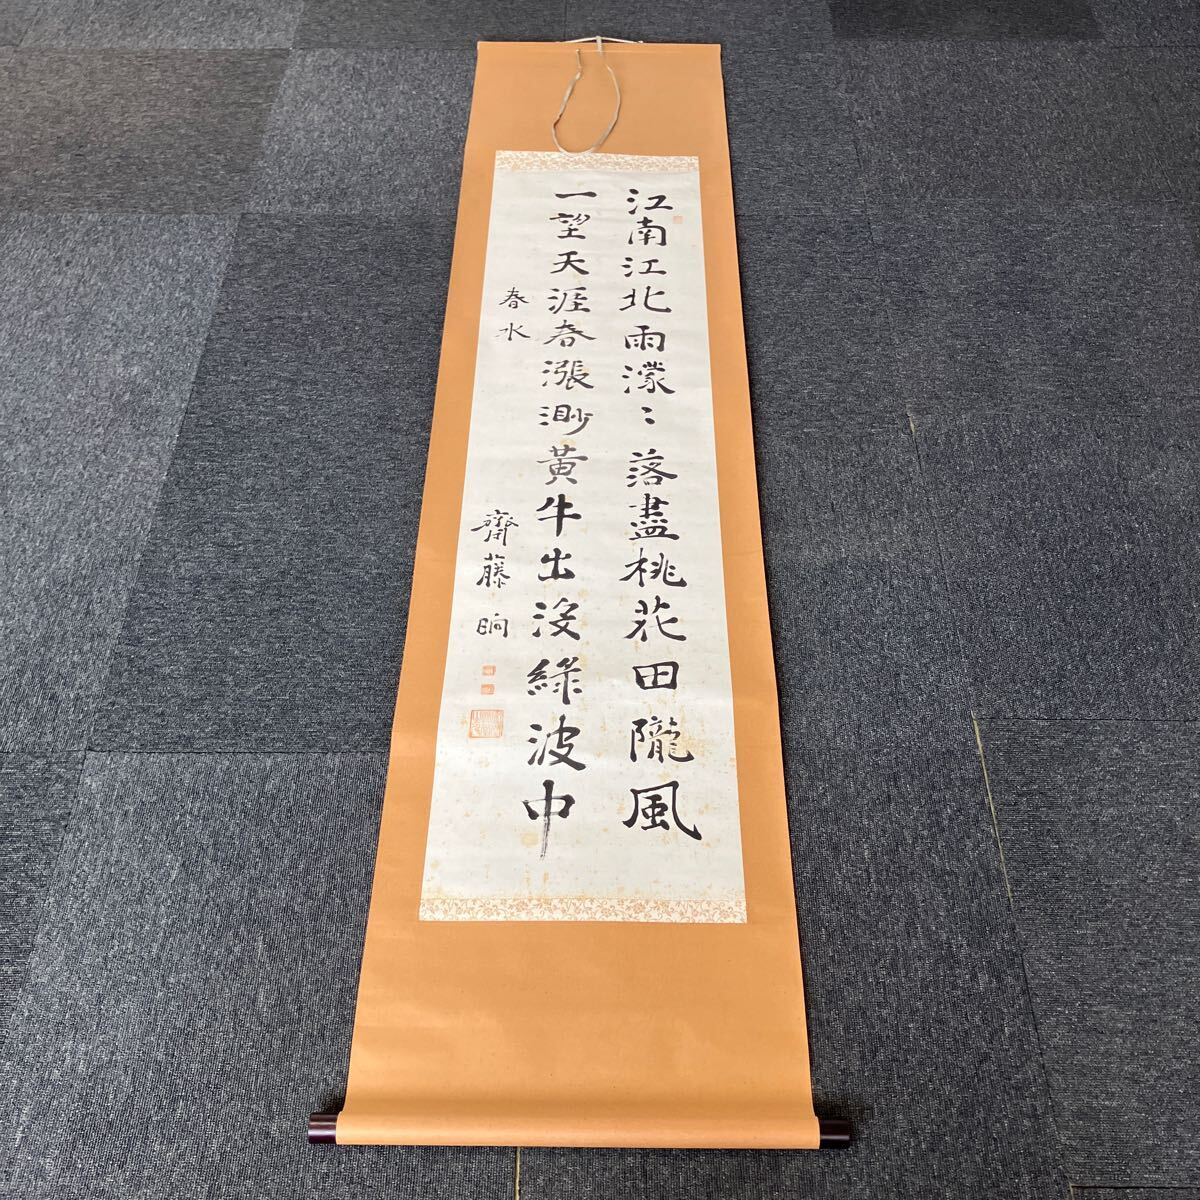 江南江北雨濛〻落盡桃花田隴風
一望天涯春漲渺黃牛出沒綠波中
春水
齋藤晌